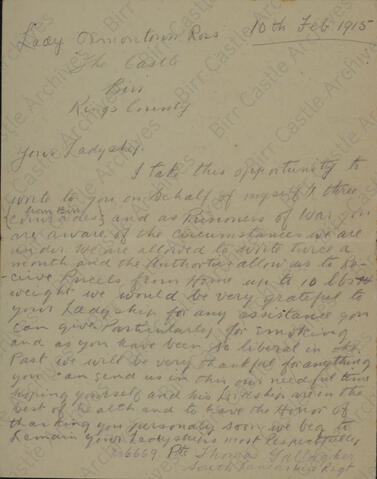 10th Feb 1915
Lady Oxmontown Ross
The Castle
Birr
Kings County
Your Ladyship.
I take this opportunity to
write to you on behalf of myself & three
comrades (from Birr) and as Prisoners of War you
are aware of the circumstances we are
under. We are allowed to write twice a
month and the Authorities allow us to re-
-ceive Parcels from Home up to 10 lbs
weight we would be very grateful to
your Ladyship for any assistance you
can give Particularly for smoking
and as you have been so liberal in the
Past we will be very thankful for anything
you can send us in this our needful time
hoping yourself and his Lordship are in the
best of health and to have the Honor of
thanking you personally soon we beg to
Remain your Ladyships most respectfully
6669 Pte Thomas Gallagher
South Lancashire Regt
Birr Castle Archives